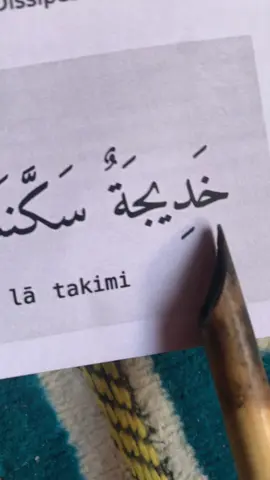 Dissip
خَدِيجَةٌ سَكَّنَ
lā takimi